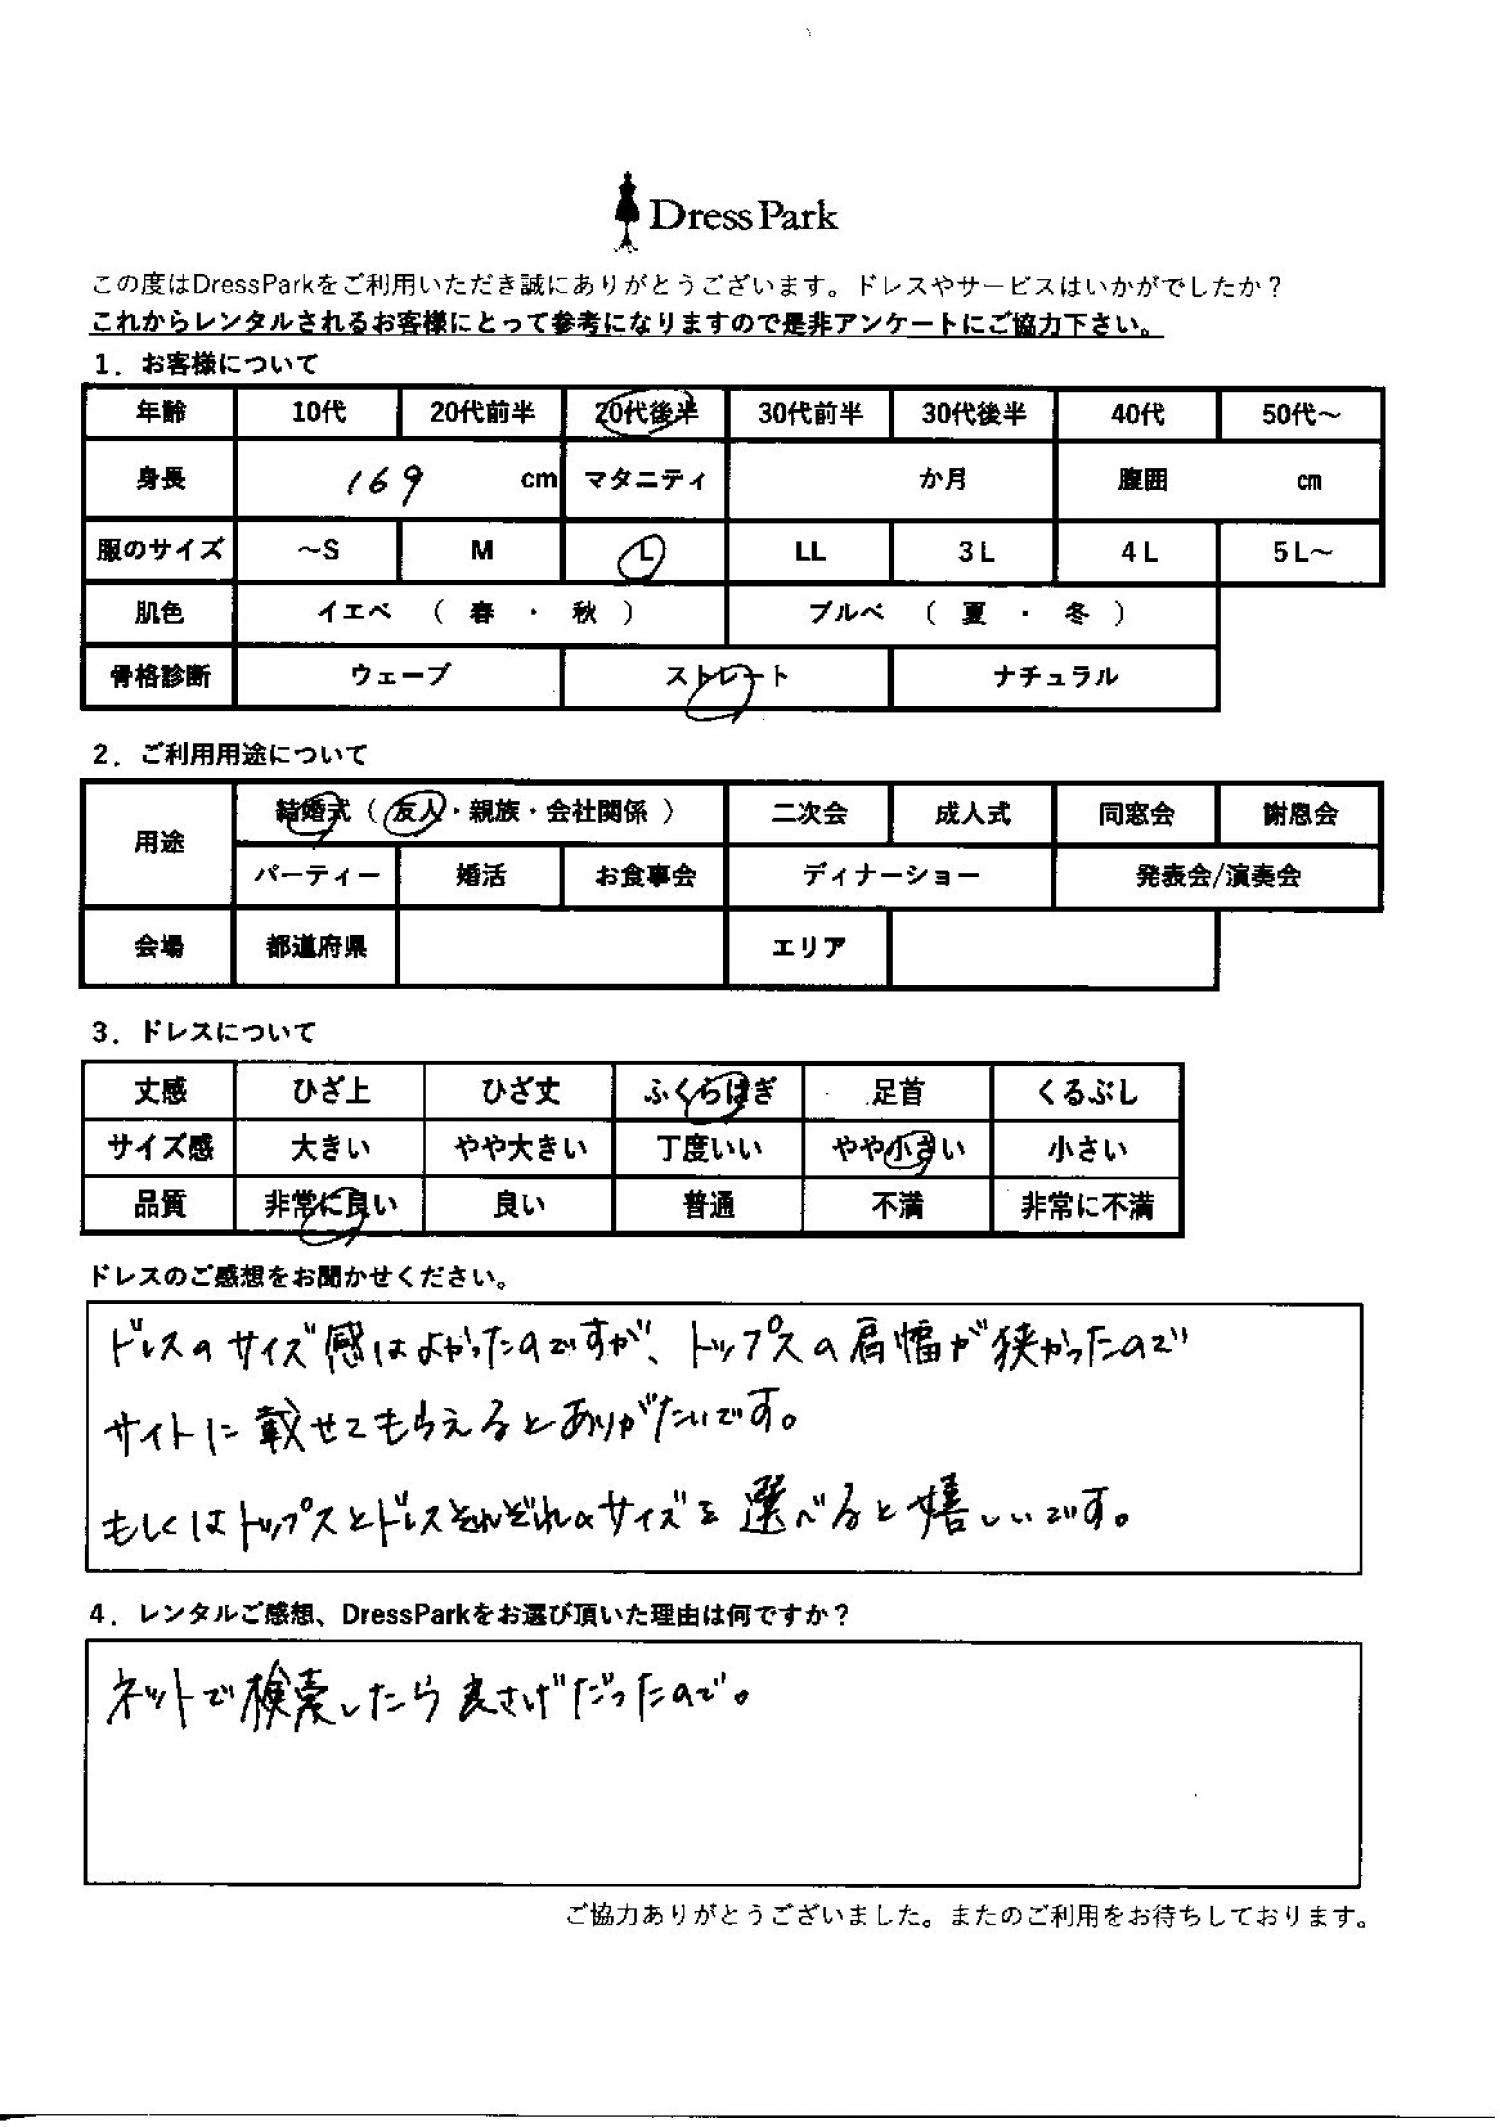 Dress Park
この度はDressParkをご利用いただき誠にありがとうございます。ドレスやサービスはいかがでしたか？
これからレンタルされるお客様にとって参考になりますので是非アンケートにご協力下さい。
1．お客様について
年齢 10代 20代前半 20代後半 30代前半 30代後半 40代 50代～
身長 169 cm マタニティ か月 腹囲 cm
服のサイズ ～S M L LL 3L 4L 5L～
肌色 イエベ （ 春 ・ 秋 ） ブルベ （ 夏 ・ 冬 ）
骨格診断 ウェーブ ストレート ナチュラル
2．ご利用用途について
用途 結婚式（ 友人・親族・会社関係 ） 二次会 成人式 同窓会 謝恩会
パーティー 婚活 お食事会 ディナーショー 発表会/演奏会
会場 都道府県 エリア
3．ドレスについて
丈感 ひざ上 ひざ丈 ふくらはぎ 足首 くるぶし
サイズ感 大きい やや大きい 丁度いい やや小さい 小さい
品質 非常に良い 良い 普通 不満 非常に不満
ドレスのご感想をお聞かせください。
ドレスのサイズ感はよかったのですが、トップスの肩幅が狭かったので
サイトに載せてもらえるとありがたいです。
もしくはトップスとドレスそれぞれのサイズを選べると嬉しいです。
4．レンタルご感想、DressParkをお選び頂いた理由は何ですか？
ネットで検索したら良さげだったので。
ご協力ありがとうございました。またのご利用をお待ちしております。